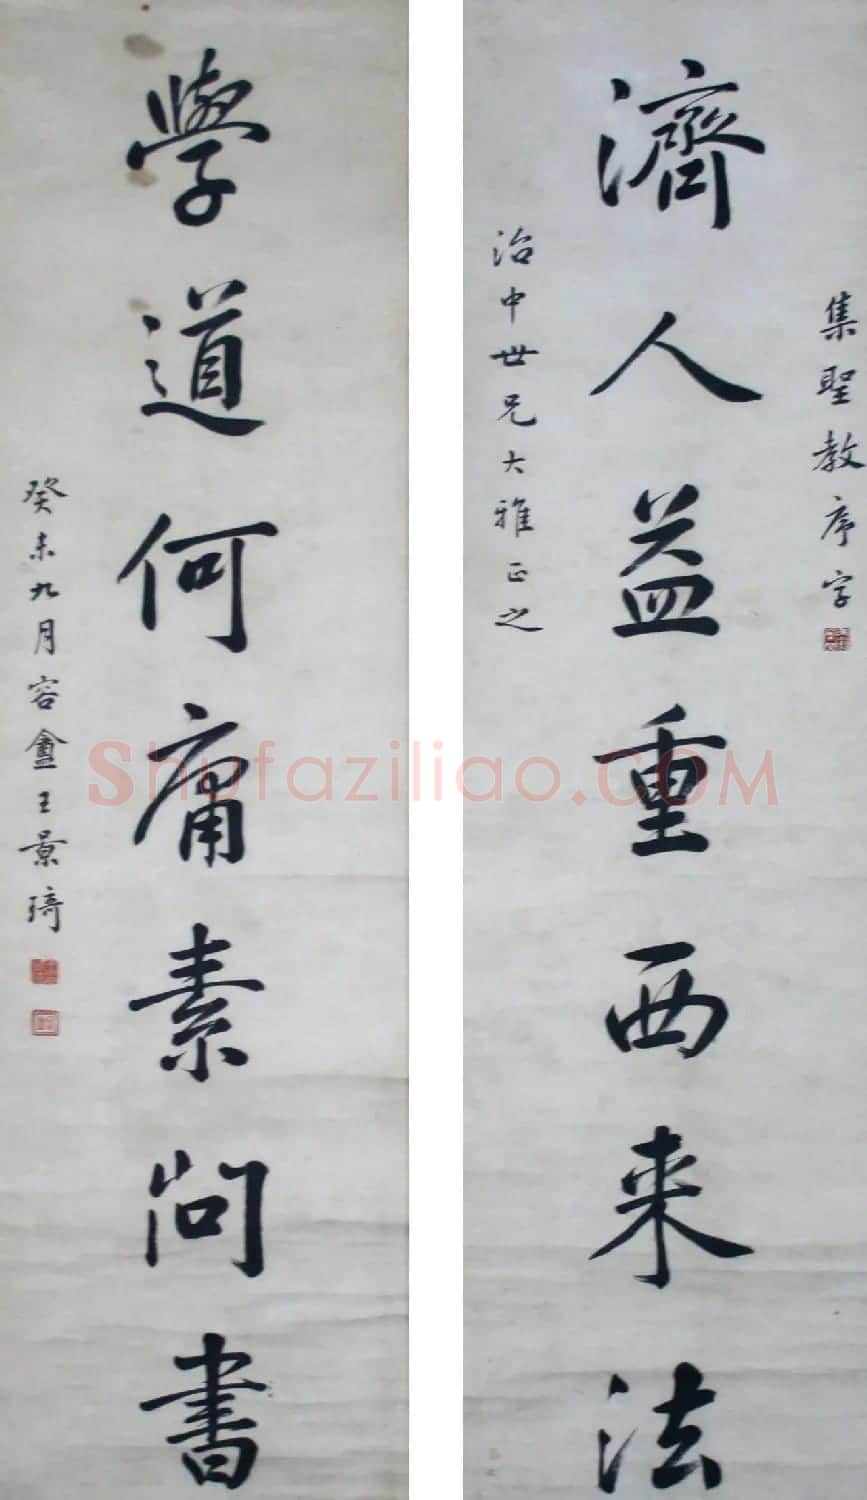 集聖教序字
濟人益重西来法
治中世兄大雅正之
學道何庸素问書
癸未九月容盦王景琦
Shufaziliao.COM